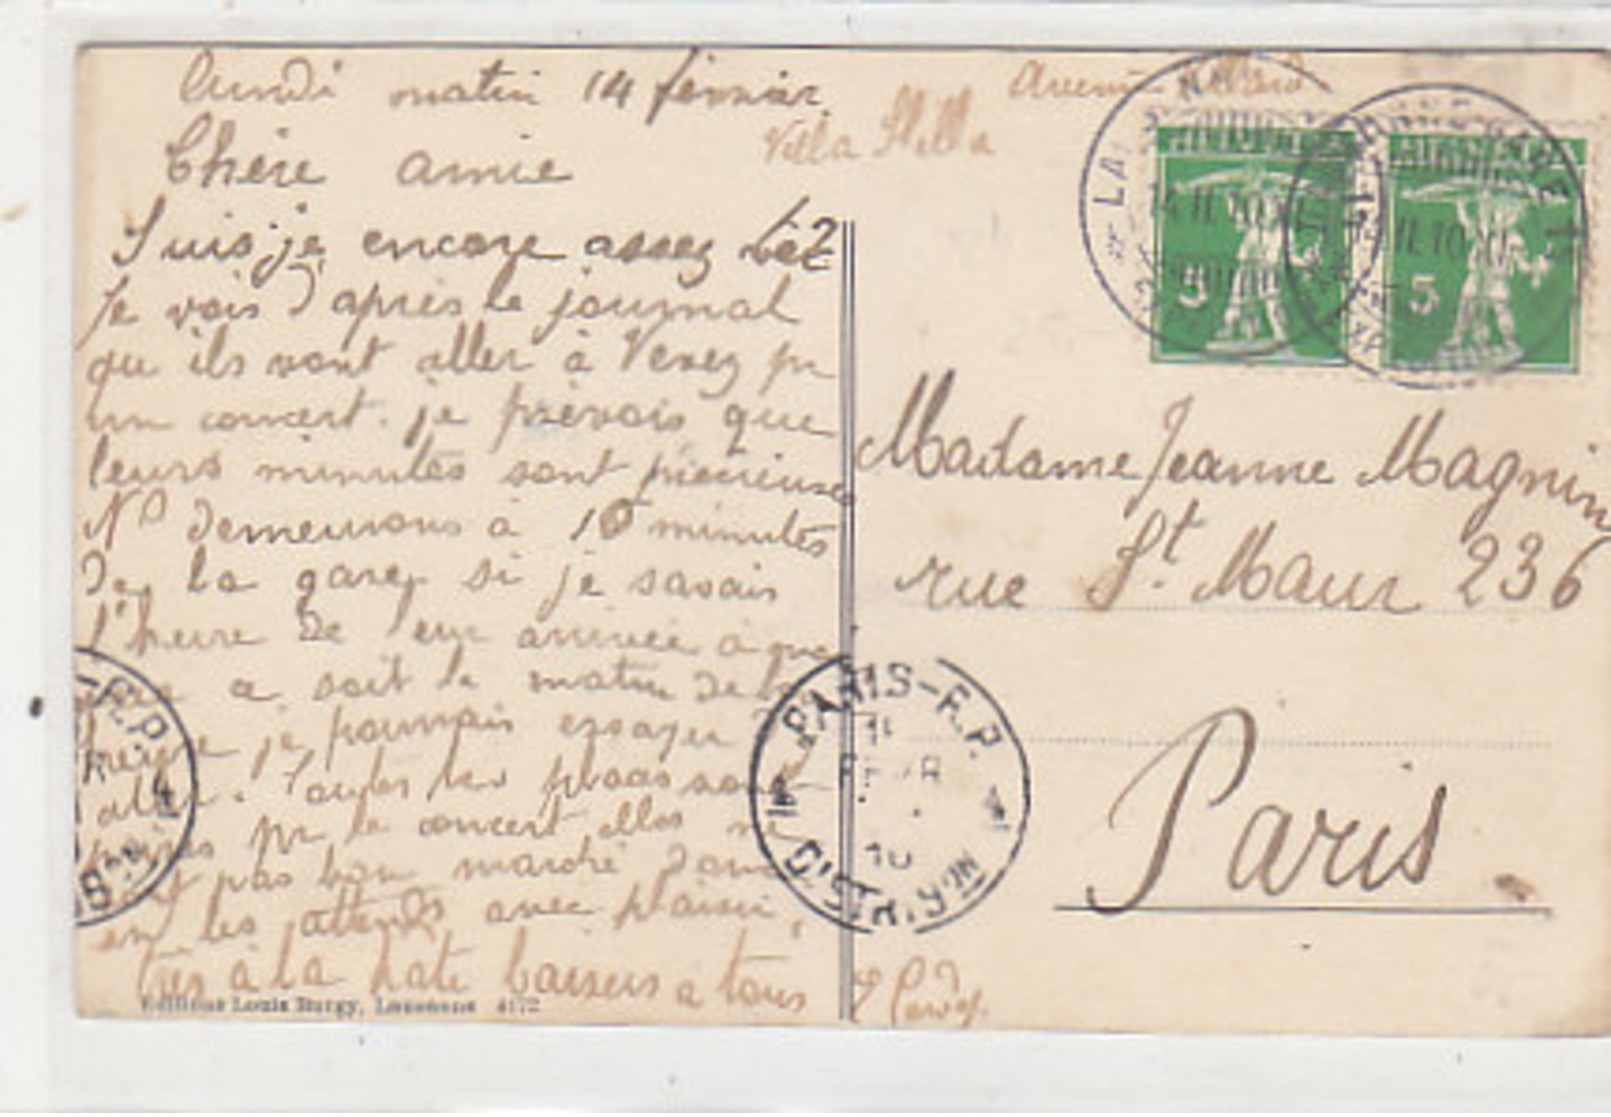 lundi matin 14 février
Villa Stella
Chère amie
Suis je encore assez tôt?
Je vois d'après le journal
qu'ils vont aller à Vevey pr
un concert. je prévois que
leurs minutes sont précieuses
Ns demeurons à 10 minutes
De la gare si je savais
l'heure de leur arrivée à que
a soit le matin de b
heure je pourrais essayer d'y
aller. Toutes les places sont
prises pr le concert elles ne
sont pas bon marché
en les attends avec plaisir,
Très à la hâte baisers à tous
Editions Louis Burgy, Lausanne 4172
5
5
Madame Jeanne Magnin
rue St. Maur 236
Paris
PARIS-R.P.
FEVR
10
DISTRIB'N